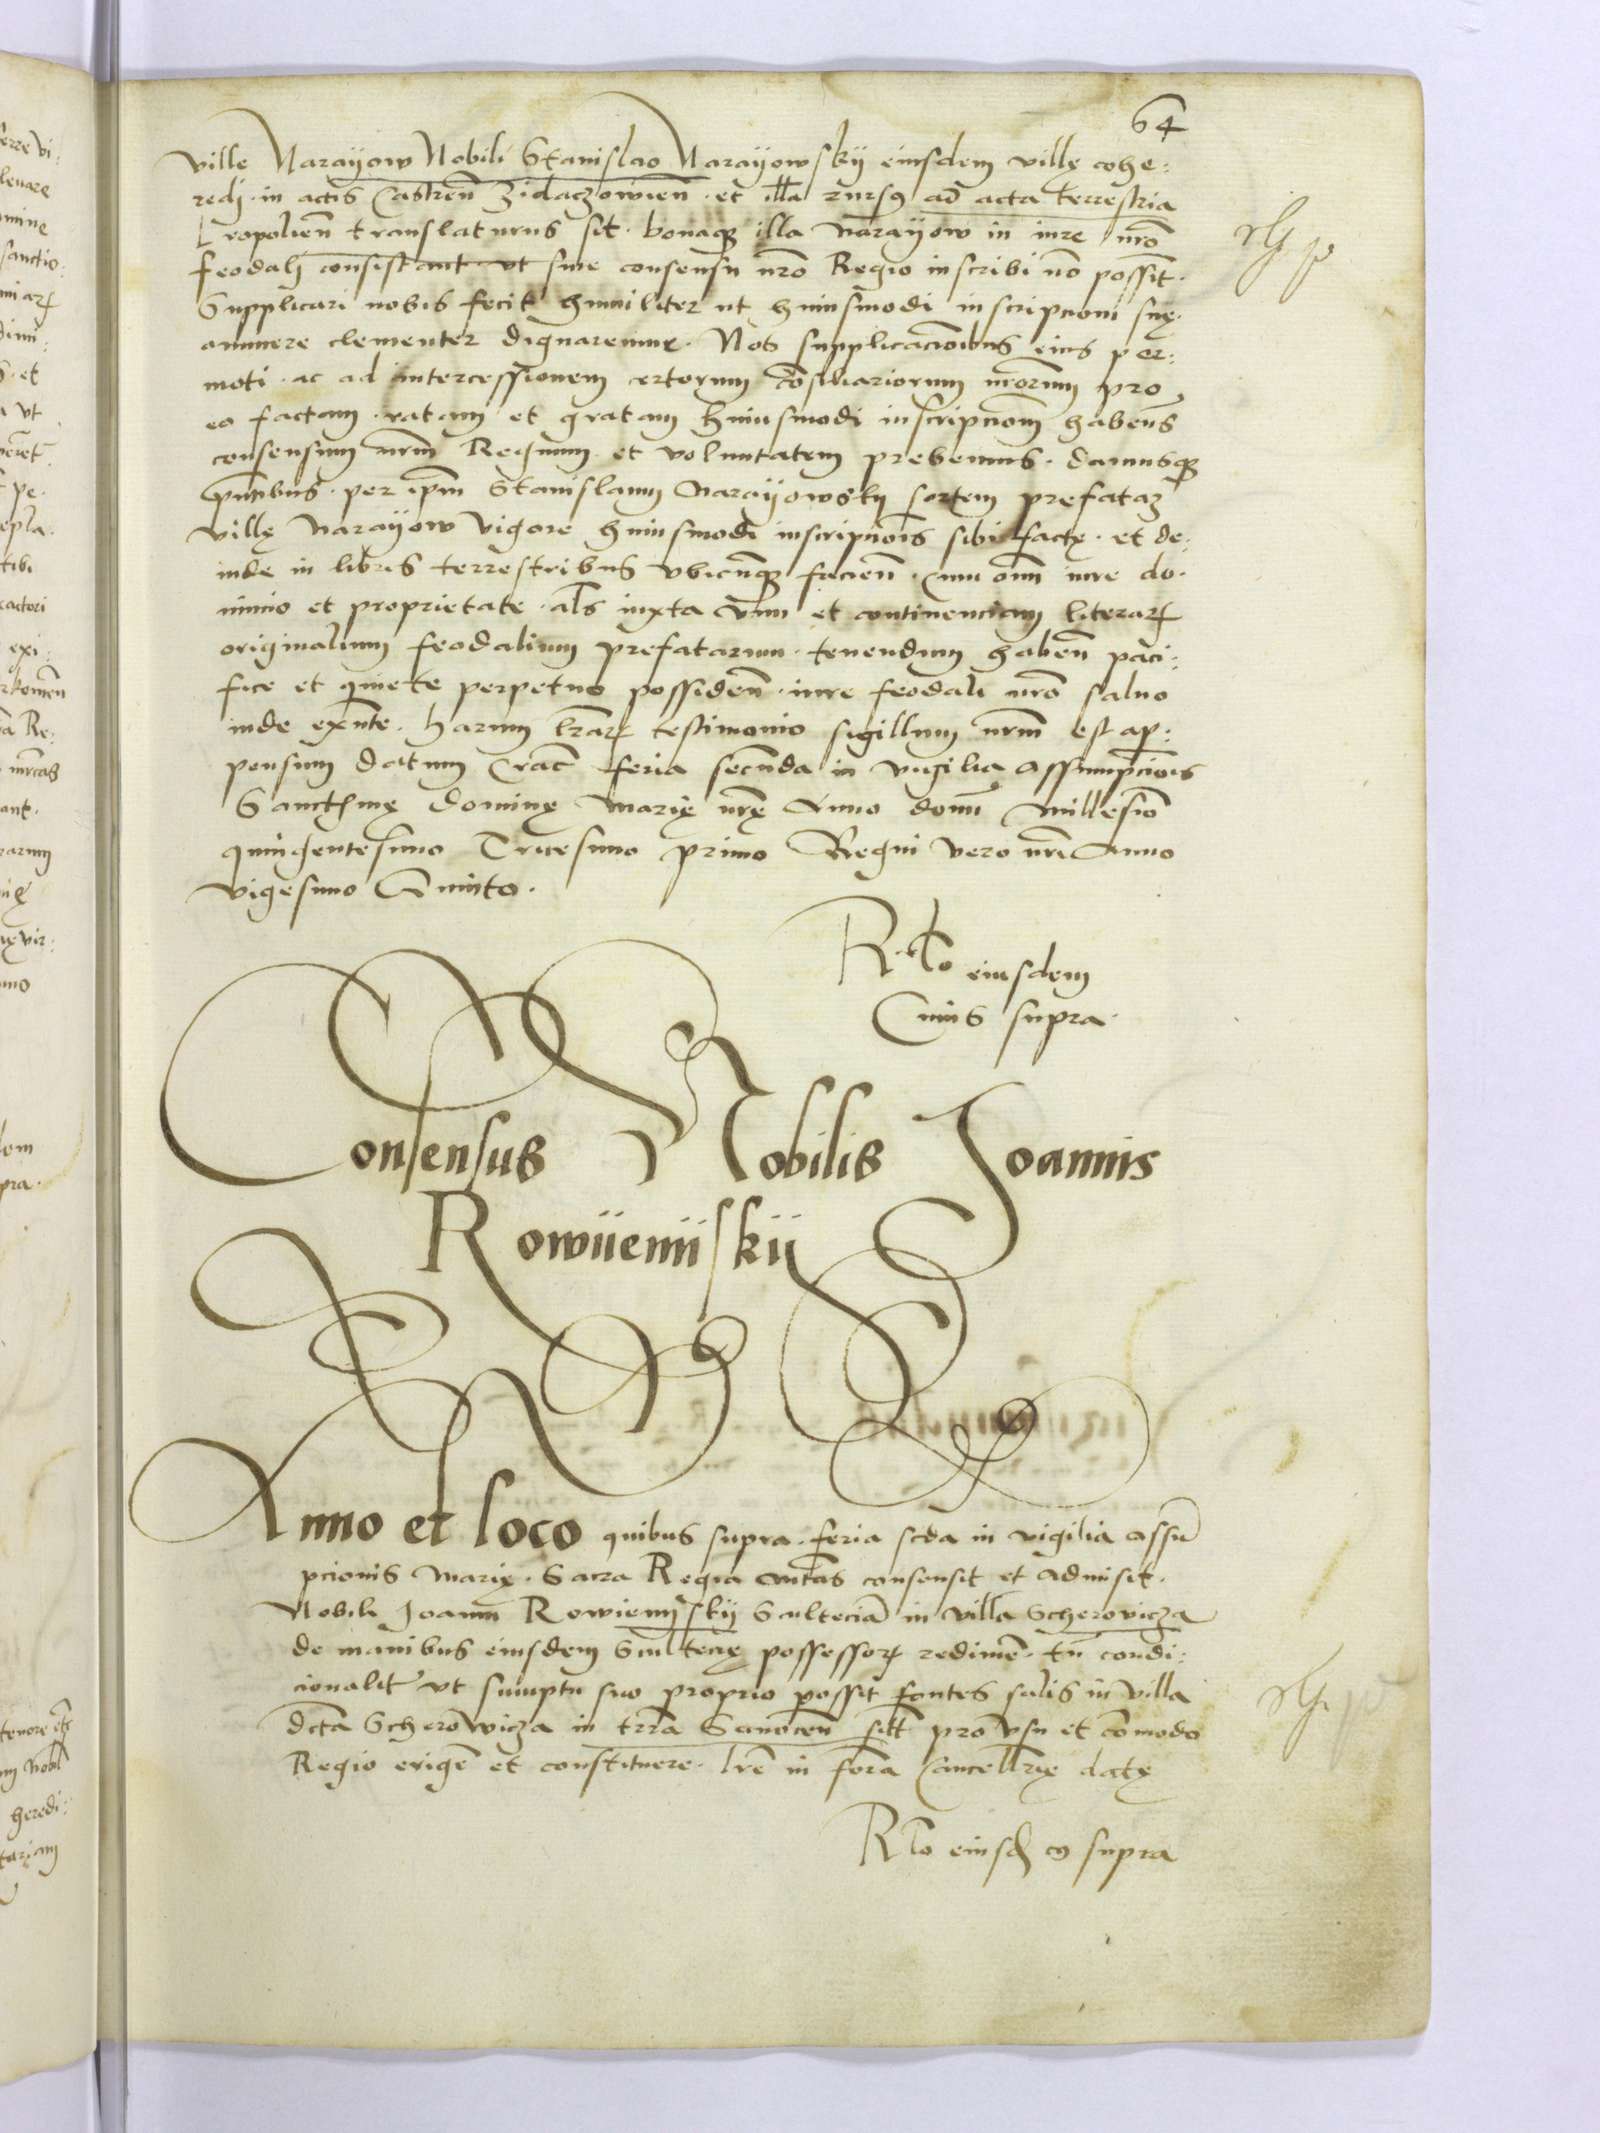 64
ville Narayow Nobili Stanislao Narayowsky eiusdem villę cohe:
redj. in actis Castreñ Zidaczowieñ. et illa rursus ad acta terrestria
Leopolieñ translaturus sit. bonaque illa Narayow in iure nro
feodalj consistant. ut sine consensu nro Regio inscribi nō possint.
Supplicari nobis fecit humiliter ut huiusmodi inscripcioni suę.
annuere clementer dignaremur. Nos supplicacionibus eius per:
moti. ac ad intercessionem certorum consiliariorum nrorum pro
eo factam. ratam et gratam huiusmodi inscripcionem habens
consensum nrm Regium et voluntatem prebemus. damusque
pntibus. per ipm Stanislaum Narayowsky sortem prefatae
villę Narayow vigore huiusmodi inscripcionis sibi factę. et de:
inde in libris terrestribus ubicunque facieñ. cum omni iure do.
minio et proprietate. als iuxta vim et continenciam literarum
originalium feodalium prefatarum. tenendum habeñ paci:
fice et quiete perpetuo possideñ. iure feodali nro salvo
inde exnte. harum lrarum testimonio sigillum nrm est ap.
pensum datum Crac feria secunda in vigilia Assumpcionis
Sanctissimę Dominę Marię nrę Anno domi Millesimo
quingentesimo Tricesimo primo Regni vero nri Anno
vigesimo Quinto.
R.tio eiusdem
Cuius supra.
Consensus Nobilis Joannis
Rowyenyskij
Anno et loco quibus supra. feria scda in vigilia Assu
pcionis Marię. Sacra Regia Mtas consensit et admisit.
Nobili Joanni Rowienyskij Sculteciā in villa Scherovicza
de manibus eiusdem Scultecię possessorum redimē. tñ condi:
cionaliter ut sumptu suo proprio possit fontes salis in villa
dcta Scherowicza in trra Sanoceñ sitt pro usu et cōmodo
Regio erigē et constituere. lrę in forā Cancellrię datę
Rtio eiusd cuius supra